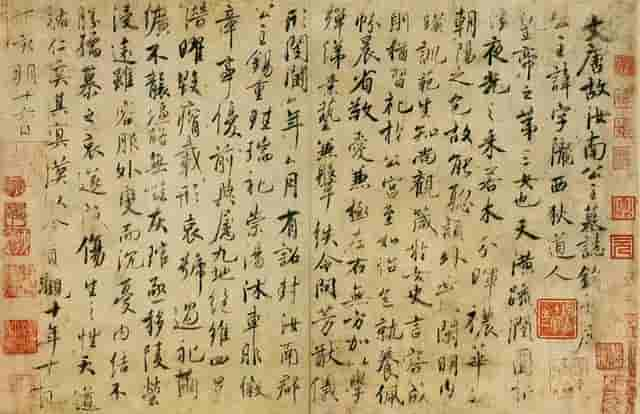 大唐故汝南公主墓誌銘并序
公主諱字隴西狄道人
皇帝之第三女也天潢疏潤圓折
浮夜光之采若木分暉穠華照
朝陽之色故能聰穎外發閑明內
暎訓範生知尚觀箴於女史言容成
則猶習禮於公宮至如怡色就養佩
帨晨省敬愛兼極左右無方加以學
殫綈素藝兼鞶紩令問芳猷儀
形閨閫年月有詔封汝南郡
公主錫重珪瑞禮崇湯沐車服徽
章事優前典屬九地絕維四星
潛曜毀瘠載形哀號過禮繭
纊不襲鹽酪無嗞灰琯亟移陵塋
浸遠雖容服外變而沉憂內結不
勝孺慕之哀遂成傷生之性天道
祐仁奚其冥漠以今貞觀十年十一月
丁亥朔十六日